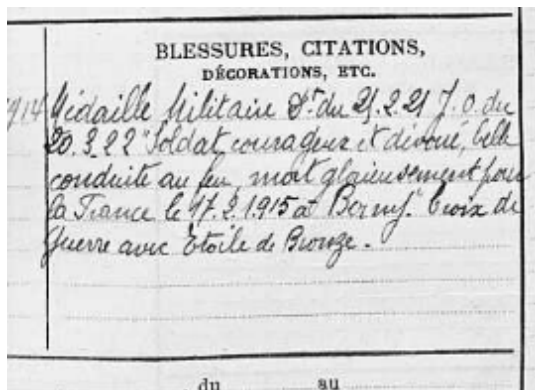 BLESSURES, CITATIONS,
DÉCORATIONS, ETC.
1914 Médaille Militaire Dt du 21.2.21 J.O. du
20.3.22 "Soldat courageux et dévoué, belle
conduite au feu, mort glorieusement pour
la France le 17.2.1915 à Berny." Croix de
Guerre avec Etoile de Bronze.
du au